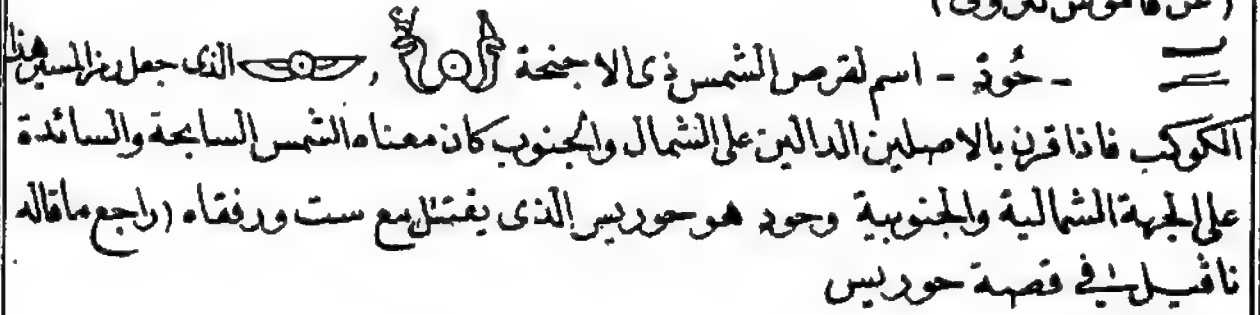 (عن قاموس لنزونى)
- حُود - اسم لقرص الشمس ذى الاجنحة , الذى جعل رمزا لسير هذا
الكوكب فاذا قرن بالاصلين الدالين على الشمال والجنوب كان معناه الشمس السابحة والسائدة
على الجهة الشمالية والجنوبية وحود هو حوريس الذى يقتتل مع ست ورفقاه (راجع ماقاله
ناڤيل فى قصة حوريس